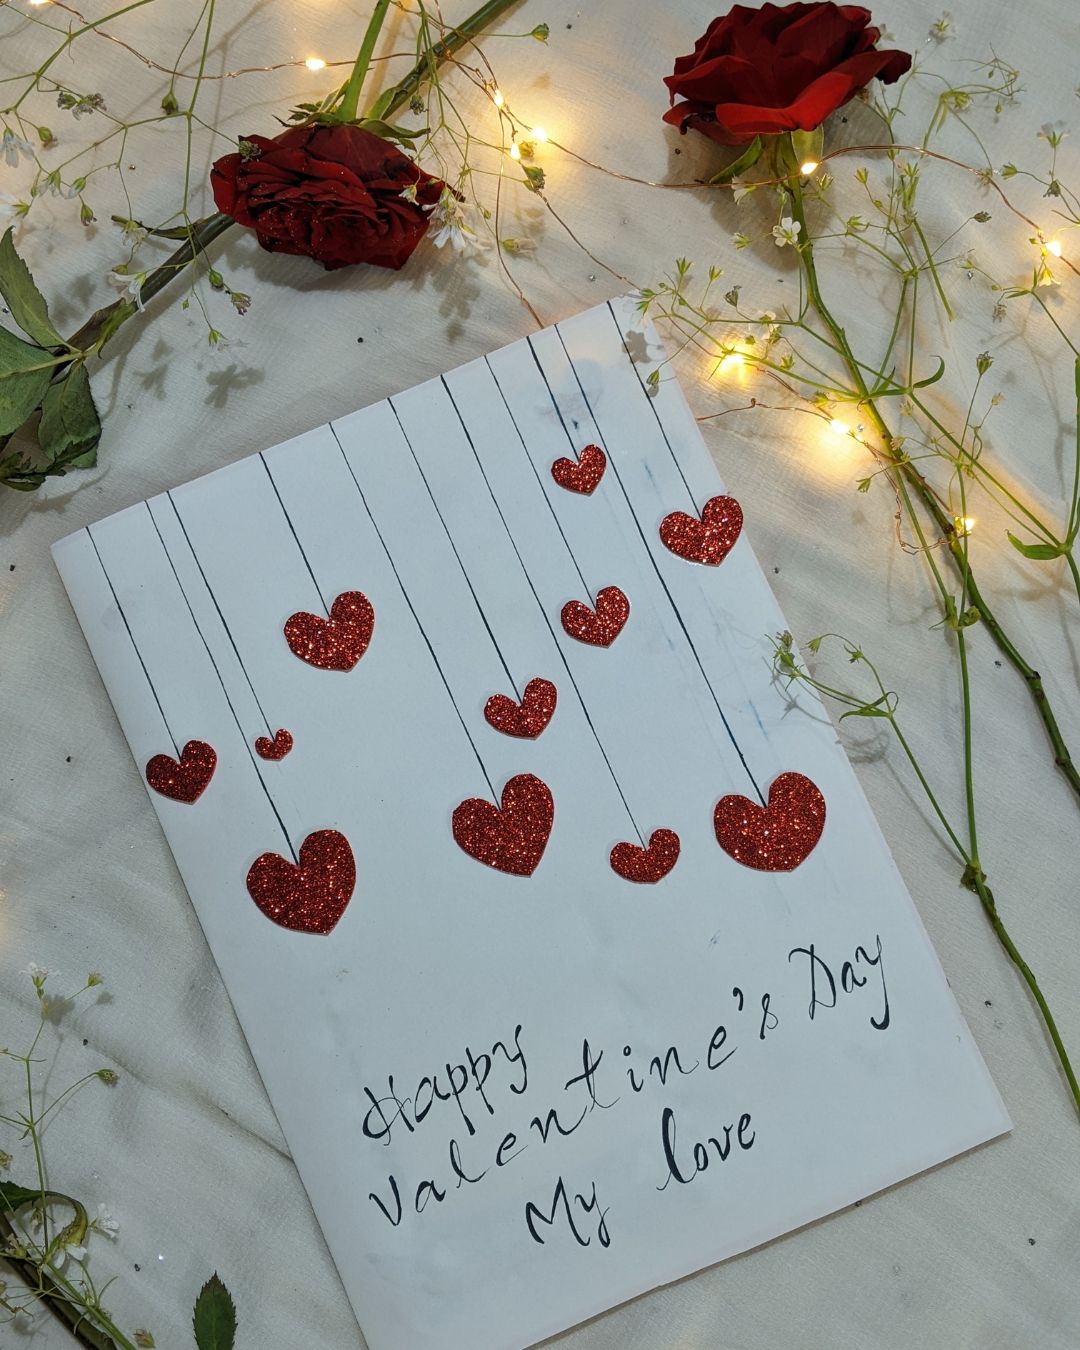 Happy
Valentine's Day
My love